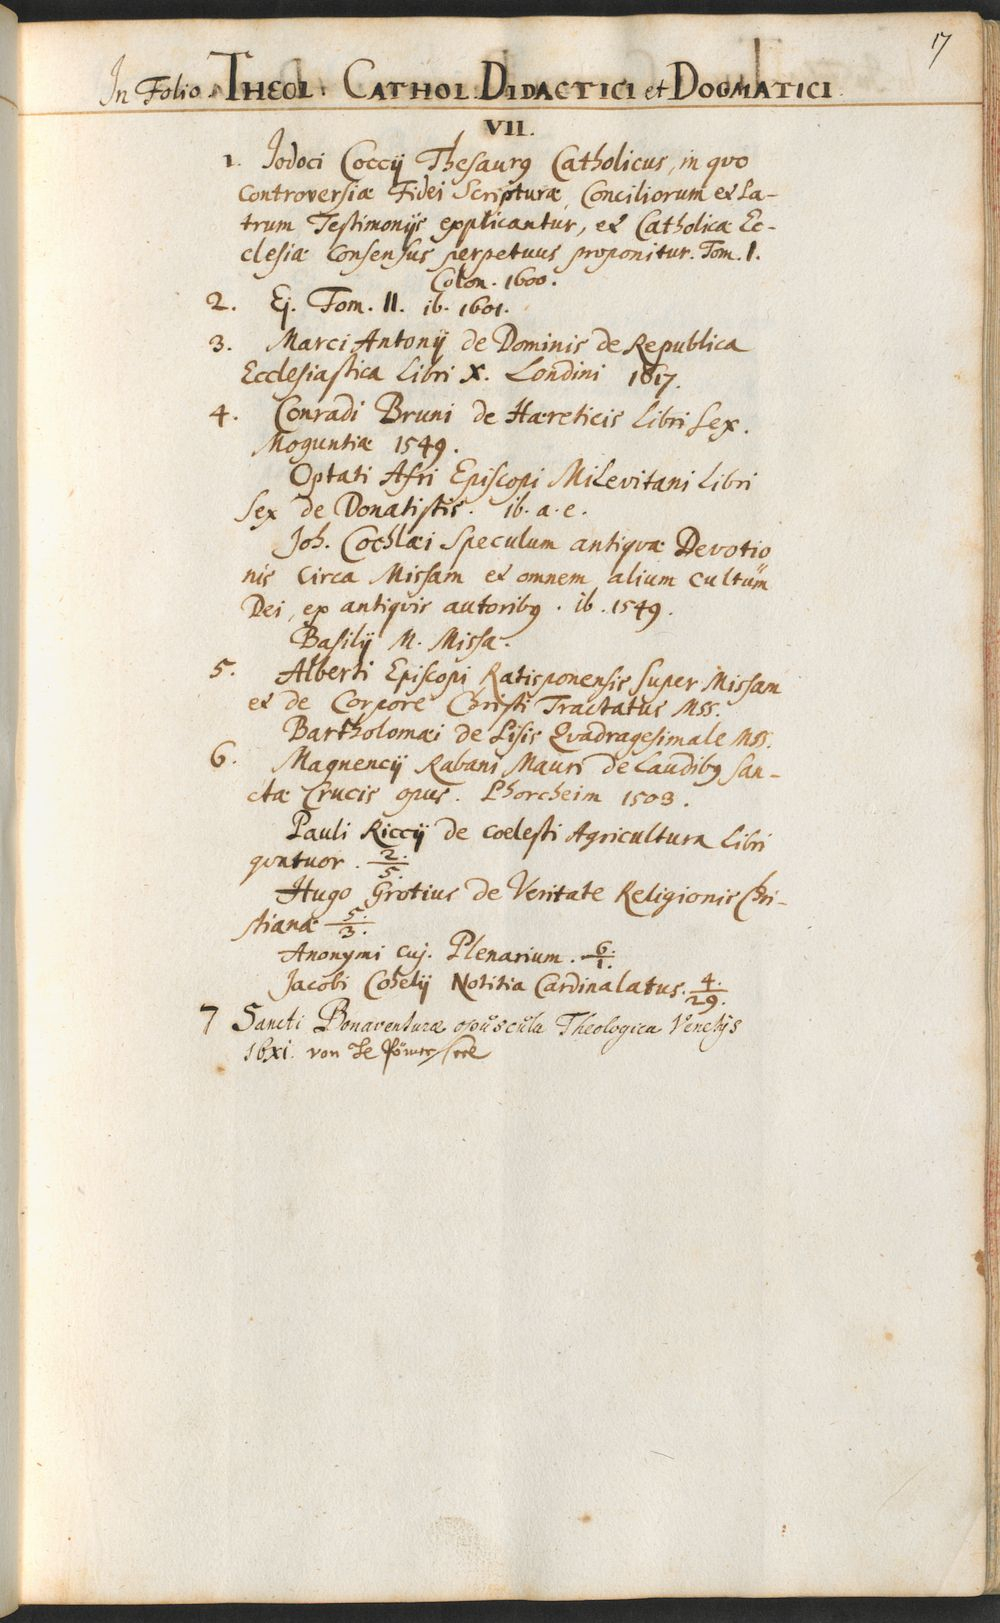 17
In Folio. THEOL. CATHOL. DIDACTICI et DOGMATICI.
VII.
1. Jodoci Coccij Thesaurg Catholicus, in qvo
Controversiæ Fidei Scripturæ, Conciliorum et Pa-
trum Testimonijs explicantur, et Catholicæ Ec-
clesiæ Consensus perpetuus proponitur. Tom. I.
Colon. 1600.
2. Ej. Tom. II. ib. 1601.
3. Marci Antonij de Dominis de Republica
Ecclesiastica Libri X. Londini 1617.
4. Conradi Bruni de Hæreticis Libri Sex.
Moguntiæ 1549.
Optati Afri Episcopi Milevitani Libri
Sex de Donatistis. ib. a. e.
Joh. Cochlæi Speculum antiqvæ Devotio
nis circa Missam et omnem alium cultum
Dei, ex antiqvis autoribg. ib. 1549.
Basilij M. Missa.
5. Alberti Episcopi Ratisponensis Super Missam
et de Corpore Christi Tractatus Mss.
Bartholomæi de Pisis Qvadragesimale Mss.
6. Magnencij Rabani Mauri de Laudibg San-
ctæ Crucis opus. Phorcheim 1503.
Pauli Riccij de coelesti Agricultura Libri
qvatuor. 2./5.
Hugo Grotius de Veritate Religionis Chri-
stianæ 5./3.
Anonymi cuj. Plenarium. 6./1.
Jacobi Cohelij Notitia Cardinalatus. 4./29.
7 Sancti Bonaventuræ opuscula Theologica Venetijs
16xi. von